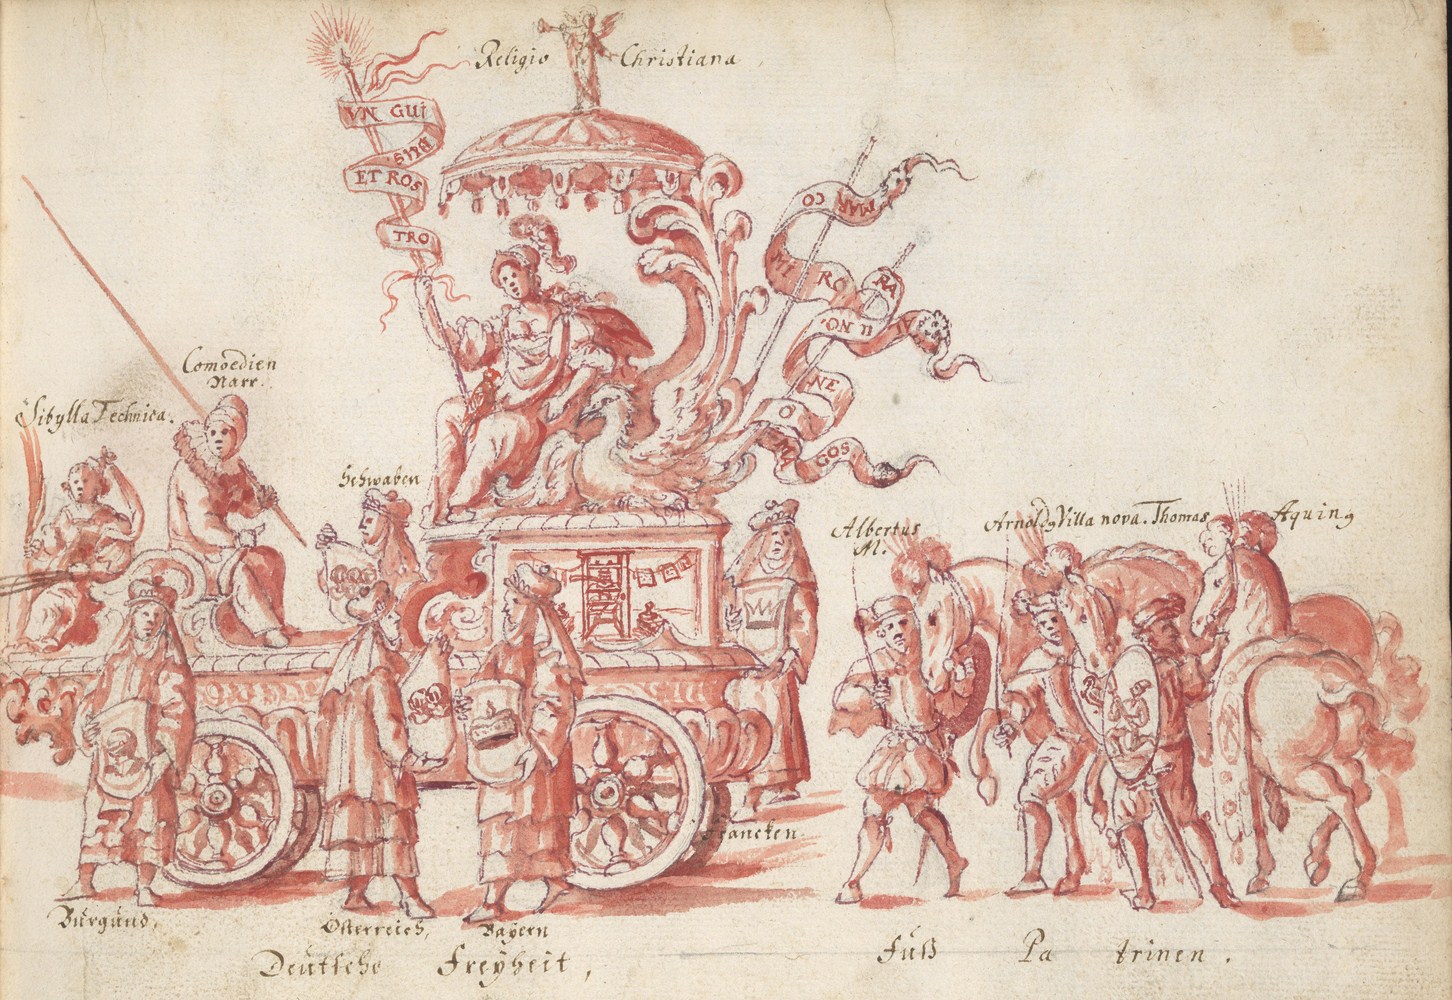 Religio Christiana
VN GUI
BUS
ET ROS
TRO
MARCO
MI RO
RA
NON
AL
NE
O
MA
GOS
Comoedien
Narr.
Sibylla Technica.
Schwaben
Albertus
M.
Arnold9 Villa nova. Thomas Aquin9
Francken
Burgund,
Österreich,
Bayern
Deütsche Freyheit,
Füß Patrinen.